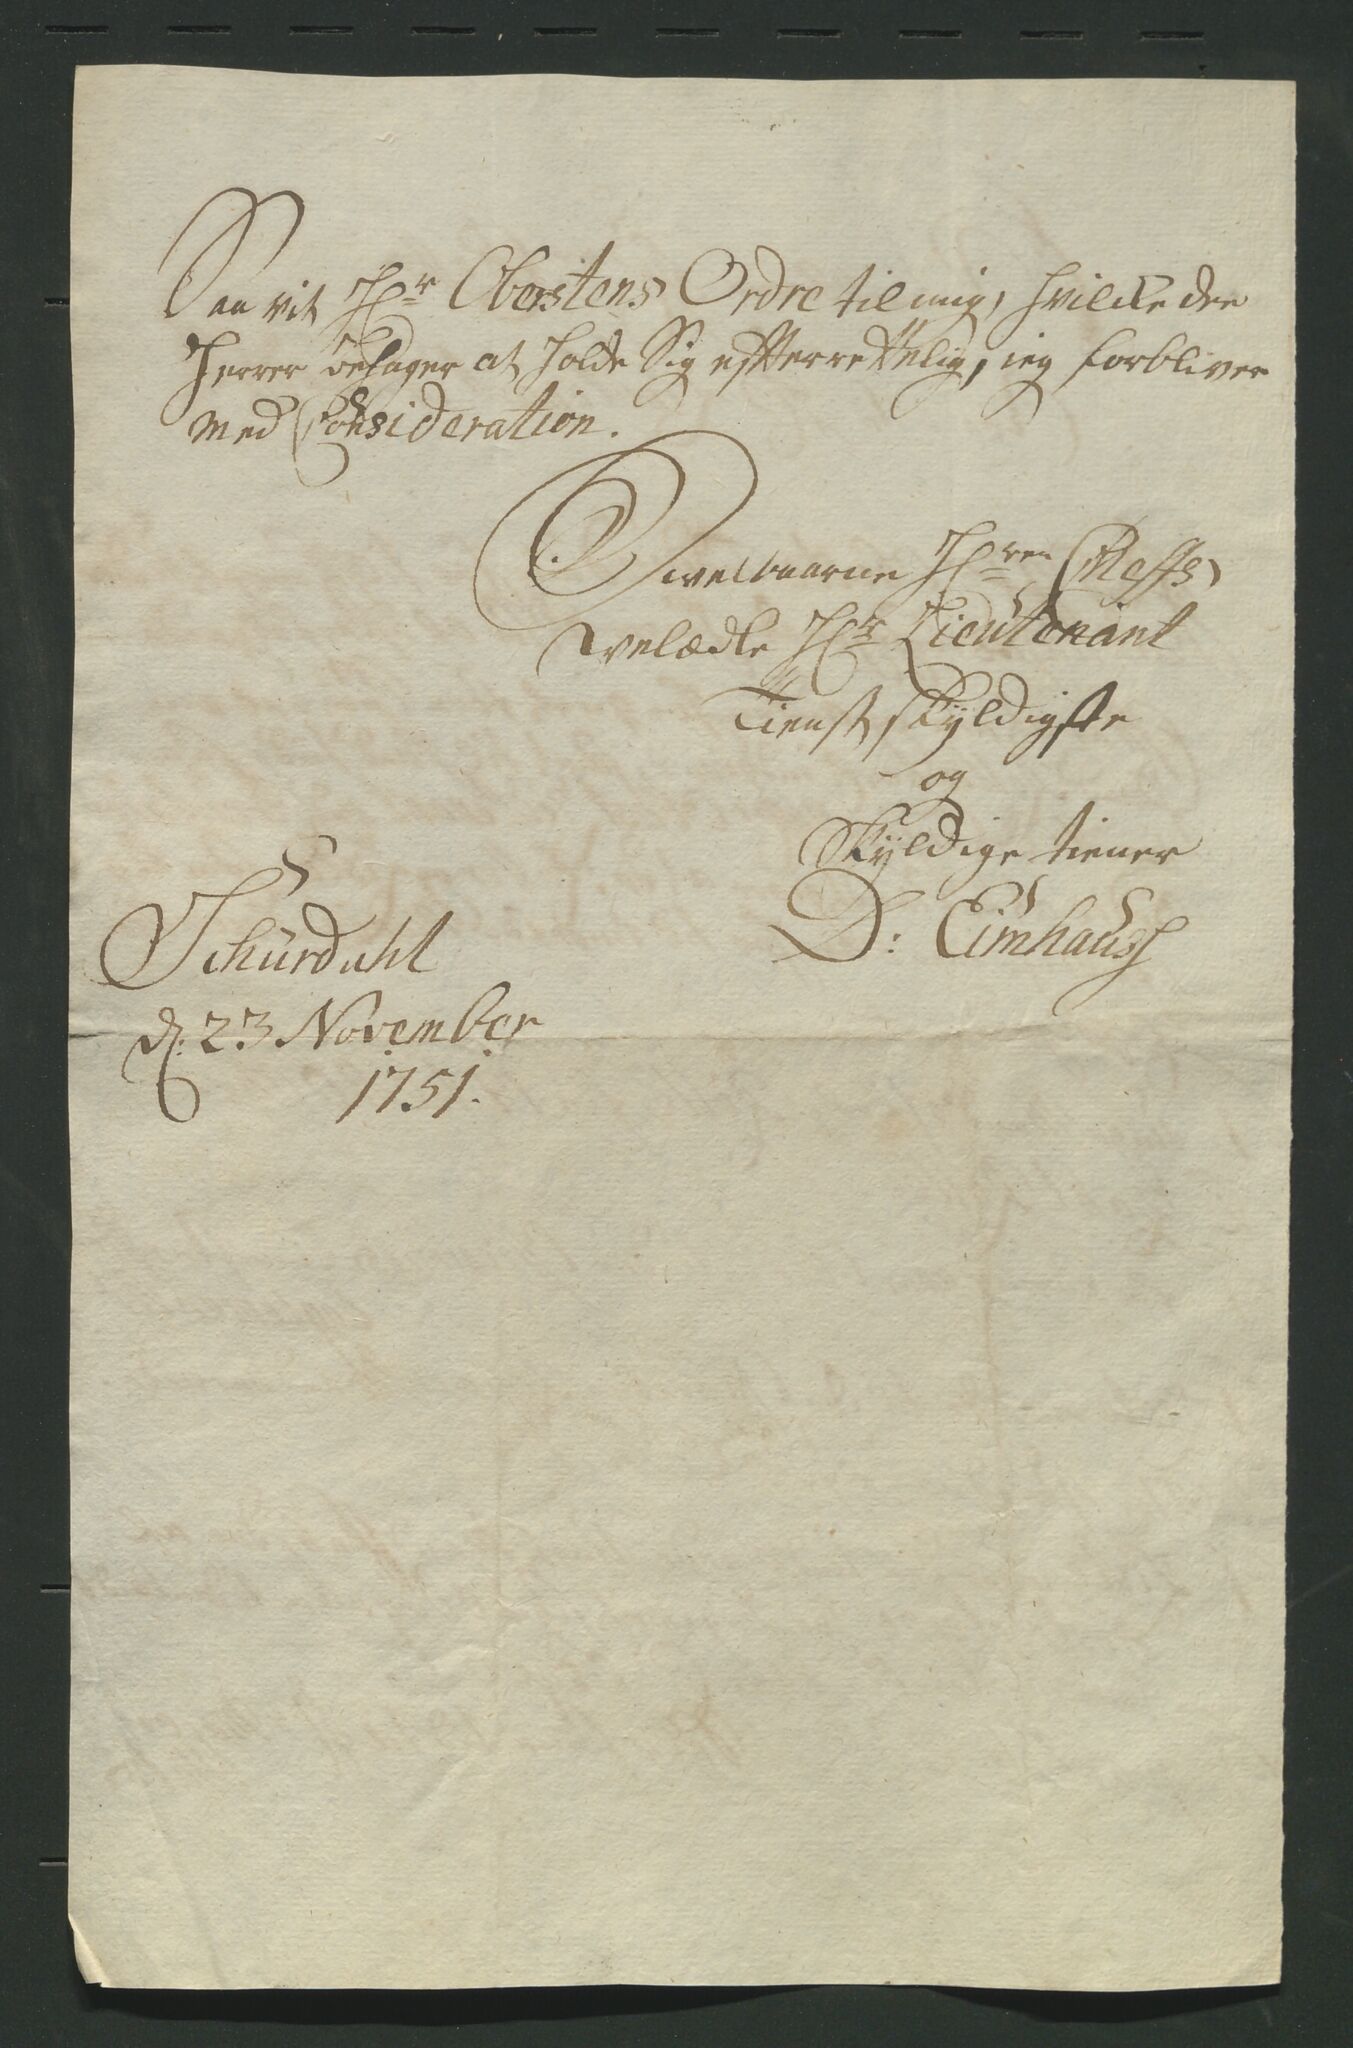 Saa vit Hr Oberstens Ordre til mig, hvilcke de
Herrer behager at holde Sig effterrettelig, ieg forbliver
med Consideration.
welbaarne Hren Cheffs
welædle Hr Lieutenant
Tienstskyldigste
og
Skyldige tiener
D: Eimhaus
Schürdahl
d: 23 November
1751.